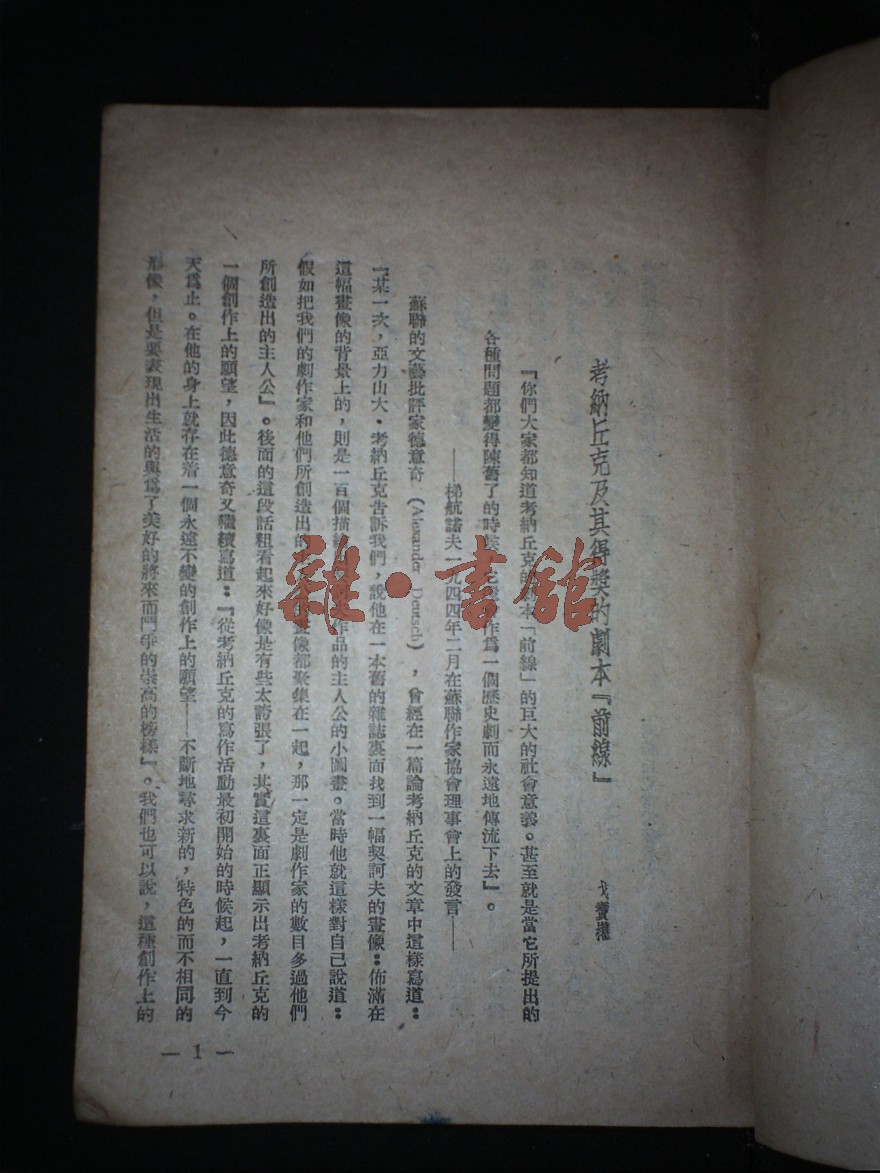 考納丘克及其得獎的劇本『前線』
戈寶權
『你們大家都知道考納丘克的 本「前線」的巨大的社會意義。甚至就是當它所提出的
各種問題都變得陳舊了的時候, 作爲一個歷史劇而永遠地傳流下去』。
——梯航諾夫一九四四年二月在蘇聯作家協會理事會上的發言——
蘇聯的文藝批評家德意奇(Alexander Deutsch),曾經在一篇論考納丘克的文章中這樣寫道:
『某一次,亞力山大・考納丘克告訴我們,說他在一本舊的雜誌裏面找到一幅契訶夫的畫像:佈滿在
這幅畫像的背景上的,則是一百個描 作品的主人公的小圖畫。當時他就這樣對自己說道:
假如把我們的劇作家和他們所創造出的 畫像都聚集在一起,那一定是劇作家的數目多過他們
所創造出的主人公』。後面的這段話粗看起來好像是有些太誇張了,其實這裏面正顯示出考納丘克的
一個創作上的願望,因此德意奇又繼續寫道:『從考納丘克的寫作活動最初開始的時候起,一直到今
天爲止。在他的身上就存在着一個永遠不變的創作上的願望——不斷地尋求新的,特色的而不相同的
形像,但是要表現出生活的與爲了美好的將來而鬥爭的崇高的榜樣』。我們也可以說,這種創作上的
— 1 —
雜・書館